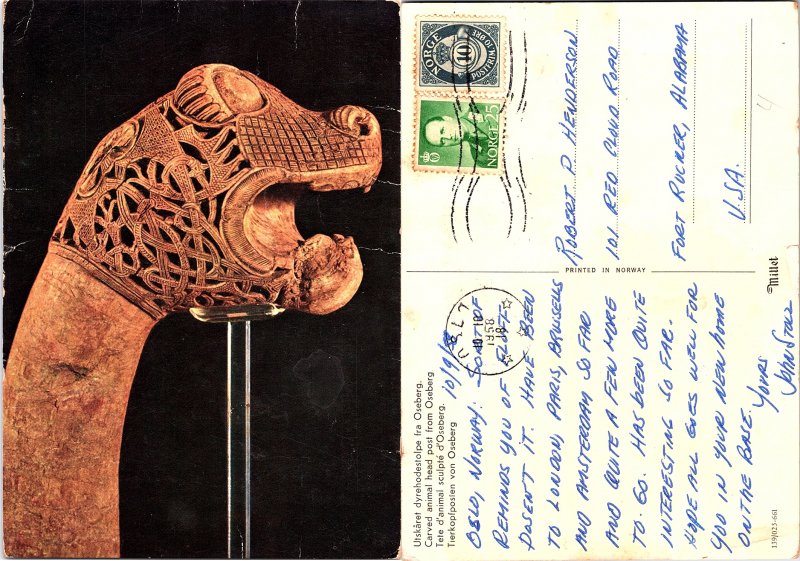 NORGE
10
POST-FRIM. 10 ØRE
NORGE 25
ROBERT D. HENDERSON
101 RED CLOUD ROAD
FORT RUCKER, ALABAMA
U.S.A.
4
PRINTED IN NORWAY
Millet
OSLO
10.10
1958
18
Utskåret dyrehodestolpe fra Oseberg.
Carved animal head post from Oseberg
Tete d'animal sculpté d'Oseberg.
Tierkopfposten von Oseberg
OSLO, NORWAY. 10/9/58
SORT OF
REMINDS YOU OF
DOSEN'T IT. HAVE BEEN
TO LONDON, PARIS, BRUSSELS
AND AMSTERDAM SO FAR
AND QUITE A FEW MORE
TO GO. HAS BEEN QUITE
INTERESTING SO FAR.
HOPE ALL GOES WELL FOR
YOU IN YOUR NEW HOME
ON THE BASE.
YOURS
139/025-661